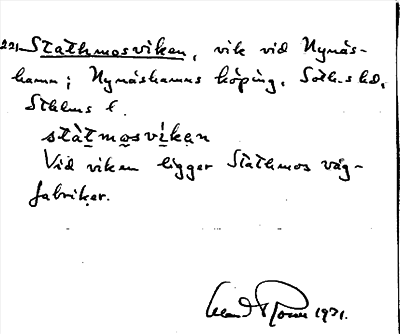 221. Stathmosviken, vik vid Nynäs-
hamn; Nynäshamns köping, Soth-s hd,
Sthlms l.
stàtmosvíkan
Vid viken ligger Stathmos våg-
fabriker.
1931.